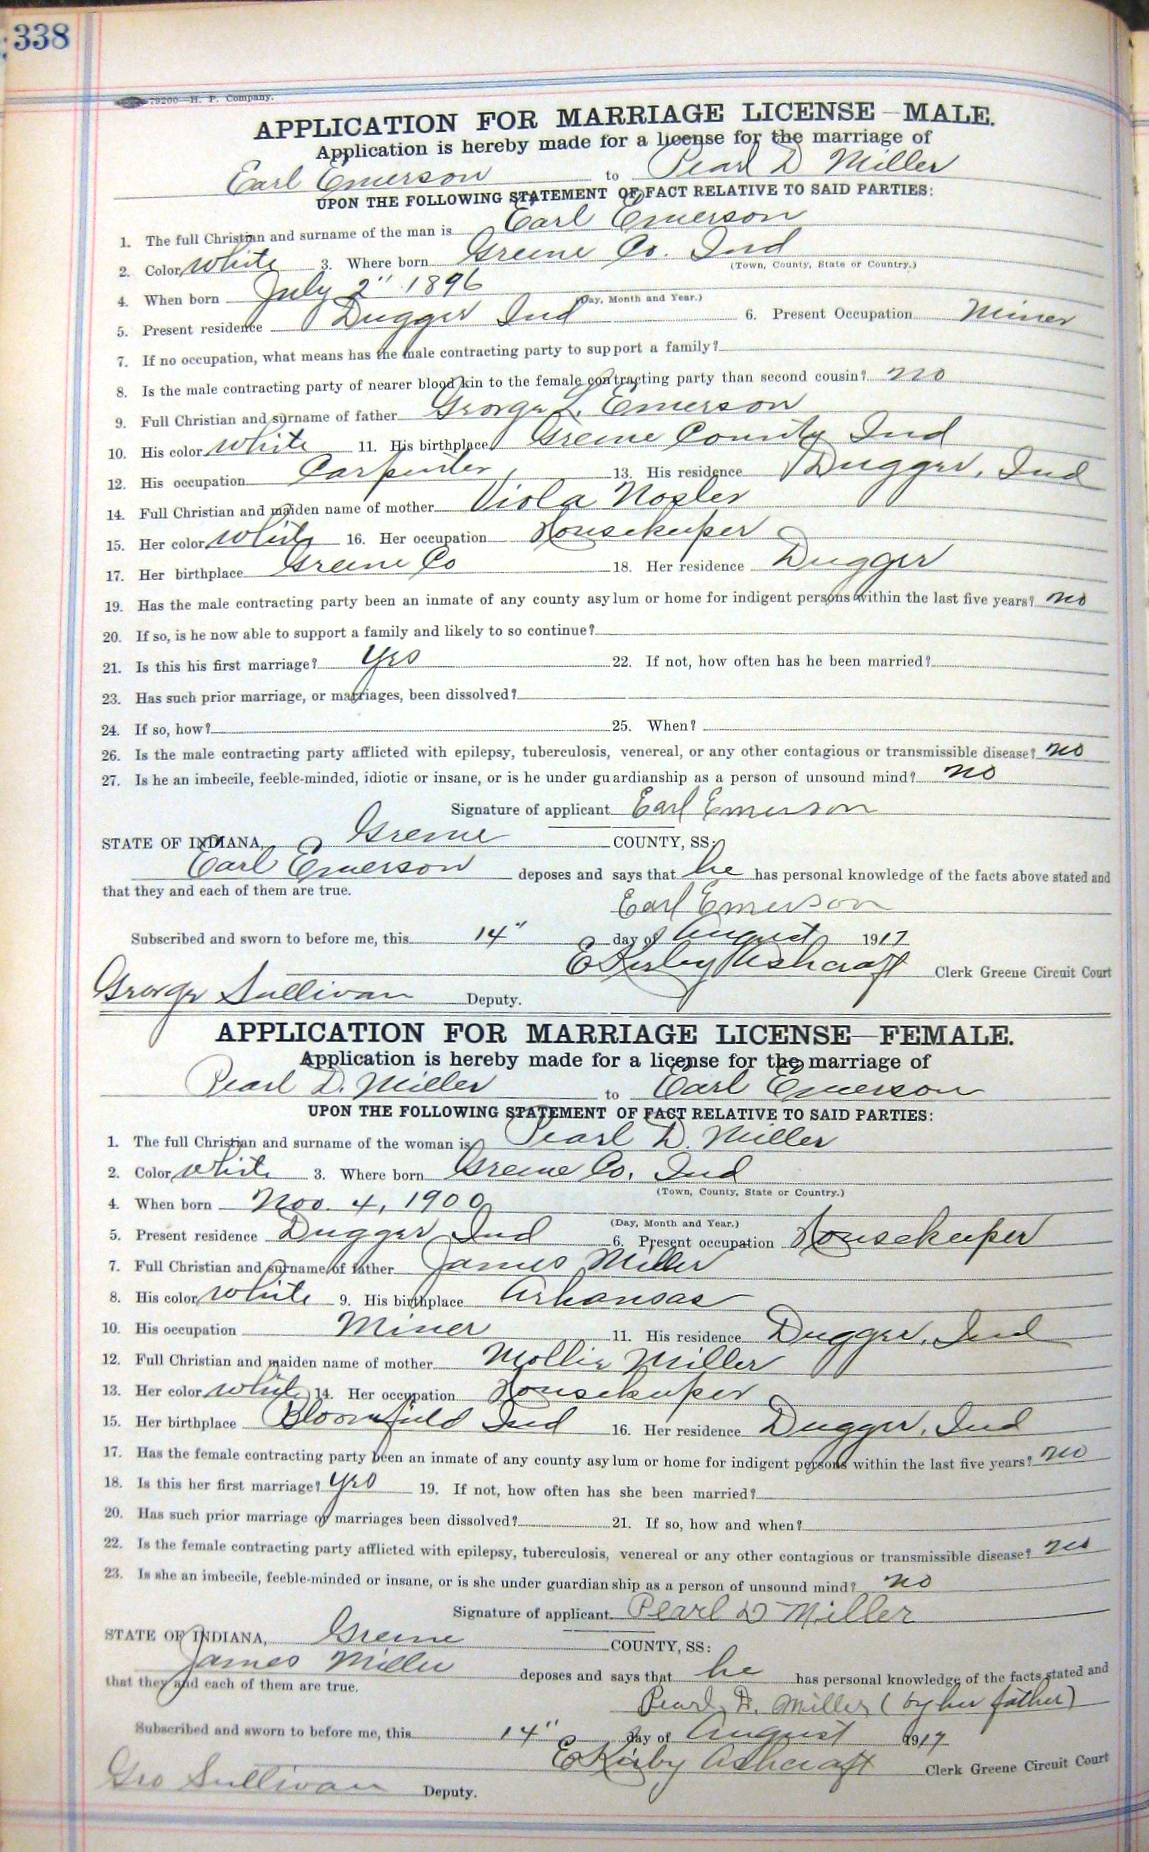 338
79200—H. P. Company.
APPLICATION FOR MARRIAGE LICENSE—MALE.
Application is hereby made for a license for the marriage of
Earl Emerson to Pearl D Miller
UPON THE FOLLOWING STATEMENT OF FACT RELATIVE TO SAID PARTIES:
1. The full Christian and surname of the man is Earl Emerson
2. Color white 3. Where born Greene Co. Ind
(Town, County, State or Country.)
4. When born July 2" 1896
(Day, Month and Year.)
5. Present residence Dugger Ind 6. Present Occupation Miner
7. If no occupation, what means has the male contracting party to support a family?
8. Is the male contracting party of nearer blood kin to the female contracting party than second cousin? no
9. Full Christian and surname of father George L. Emerson
10. His color white 11. His birthplace Greene County Ind
12. His occupation Carpenter 13. His residence Dugger, Ind
14. Full Christian and maiden name of mother Viola Nosler
15. Her color white 16. Her occupation Housekeeper
17. Her birthplace Greene Co 18. Her residence Dugger
19. Has the male contracting party been an inmate of any county asylum or home for indigent persons within the last five years? no
20. If so, is he now able to support a family and likely to so continue?
21. Is this his first marriage? yes 22. If not, how often has he been married?
23. Has such prior marriage, or marriages, been dissolved?
24. If so, how? 25. When?
26. Is the male contracting party afflicted with epilepsy, tuberculosis, venereal, or any other contagious or transmissible disease? no
27. Is he an imbecile, feeble-minded, idiotic or insane, or is he under guardianship as a person of unsound mind? no
Signature of applicant Earl Emerson
STATE OF INDIANA, Greene COUNTY, SS:
Earl Emerson deposes and says that he has personal knowledge of the facts above stated and
that they and each of them are true.
Earl Emerson
Subscribed and sworn to before me, this 14" day of August 1917
E Kirby Ashcraft Clerk Greene Circuit Court
George Sullivan Deputy.
APPLICATION FOR MARRIAGE LICENSE—FEMALE.
Application is hereby made for a license for the marriage of
Pearl D. Miller to Earl Emerson
UPON THE FOLLOWING STATEMENT OF FACT RELATIVE TO SAID PARTIES:
1. The full Christian and surname of the woman is Pearl D. Miller
2. Color white 3. Where born Greene Co. Ind
(Town, County, State or Country.)
4. When born Nov. 4, 1900
(Day, Month and Year.)
5. Present residence Dugger Ind 6. Present occupation Housekeeper
7. Full Christian and surname of father James Miller
8. His color white 9. His birthplace Arkansas
10. His occupation Miner 11. His residence Dugger, Ind
12. Full Christian and maiden name of mother Mollie Miller
13. Her color white 14. Her occupation Housekeeper
15. Her birthplace Bloomfield Ind 16. Her residence Dugger, Ind
17. Has the female contracting party been an inmate of any county asylum or home for indigent persons within the last five years? no
18. Is this her first marriage? yes 19. If not, how often has she been married?
20. Has such prior marriage or marriages been dissolved? 21. If so, how and when?
22. Is the female contracting party afflicted with epilepsy, tuberculosis, venereal or any other contagious or transmissible disease? no
23. Is she an imbecile, feeble-minded or insane, or is she under guardianship as a person of unsound mind? no
Signature of applicant Pearl D Miller
STATE OF INDIANA, Greene COUNTY, SS:
James Miller deposes and says that he has personal knowledge of the facts stated and
that they and each of them are true.
Pearl D. Miller (by her father)
Subscribed and sworn to before me, this 14" day of August 1917
E Kirby Ashcraft Clerk Greene Circuit Court
Geo Sullivan Deputy.